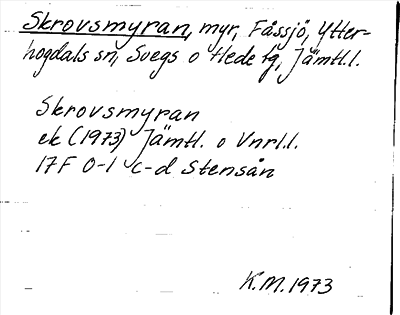 Skrovsmyran, myr, Fåssjö, Ytter-
hogdals sn, Svegs o Hede tg, Jämtl.l.
Skrovsmyran
ek (1973) Jämtl. o Vnrl.l.
17F 0-1 c-d Stensån
K.M. 1973